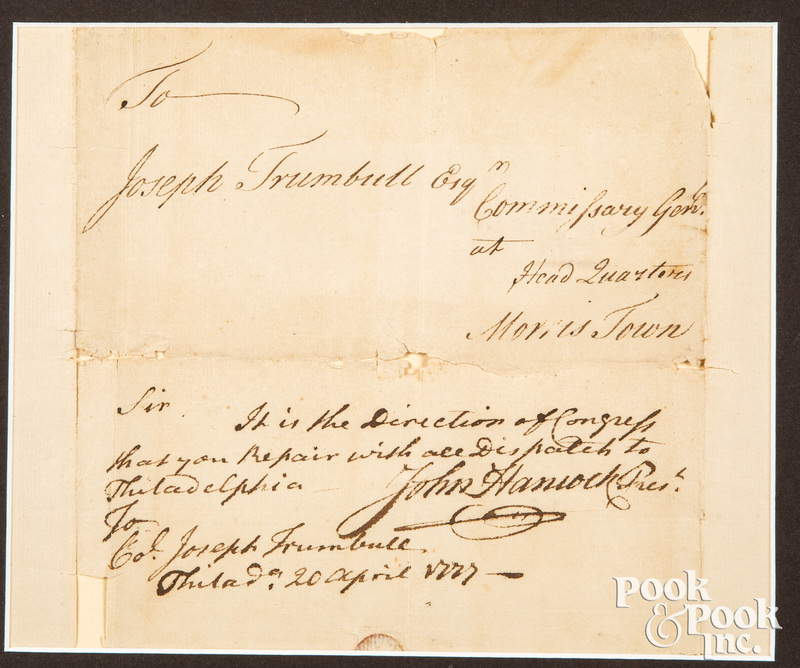 To
Joseph Trumbull Esqr
Commissary Genl.
at
Head Quarters
Morris Town
Sir. It is the Direction of Congress
that you Repair with all Dispatch to
Philadelphia John Hancock Presdt.
To
Col. Joseph Trumbull
Philada. 20 April 1777 —
POOK
& POOK
Inc.